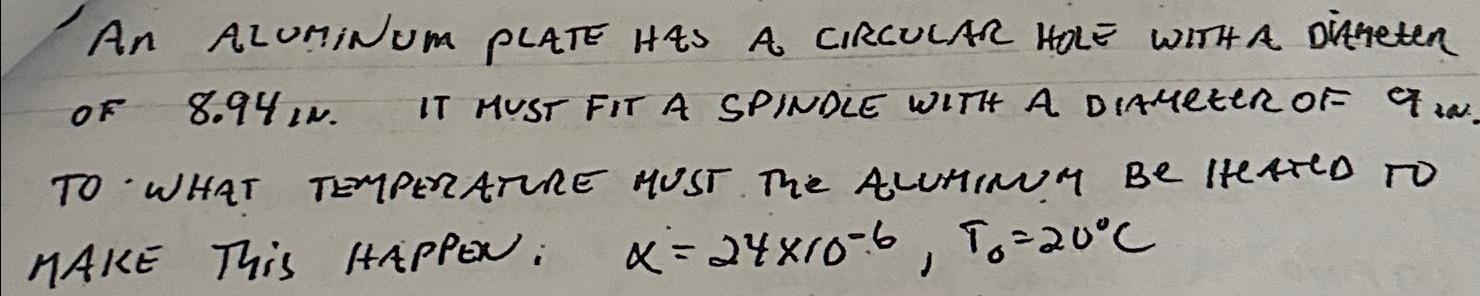 An ALUMINUM PLATE HAS A CIRCULAR HOLE WITH A DIAMETER
OF 8.94 IN. IT MUST FIT A SPINDLE WITH A DIAMETER OF 9 IN.
TO WHAT TEMPERATURE MUST The ALUMINUM Be HEATED TO
MAKE This HAPPEN: α = 24x10⁻⁶, T₀ = 20°C